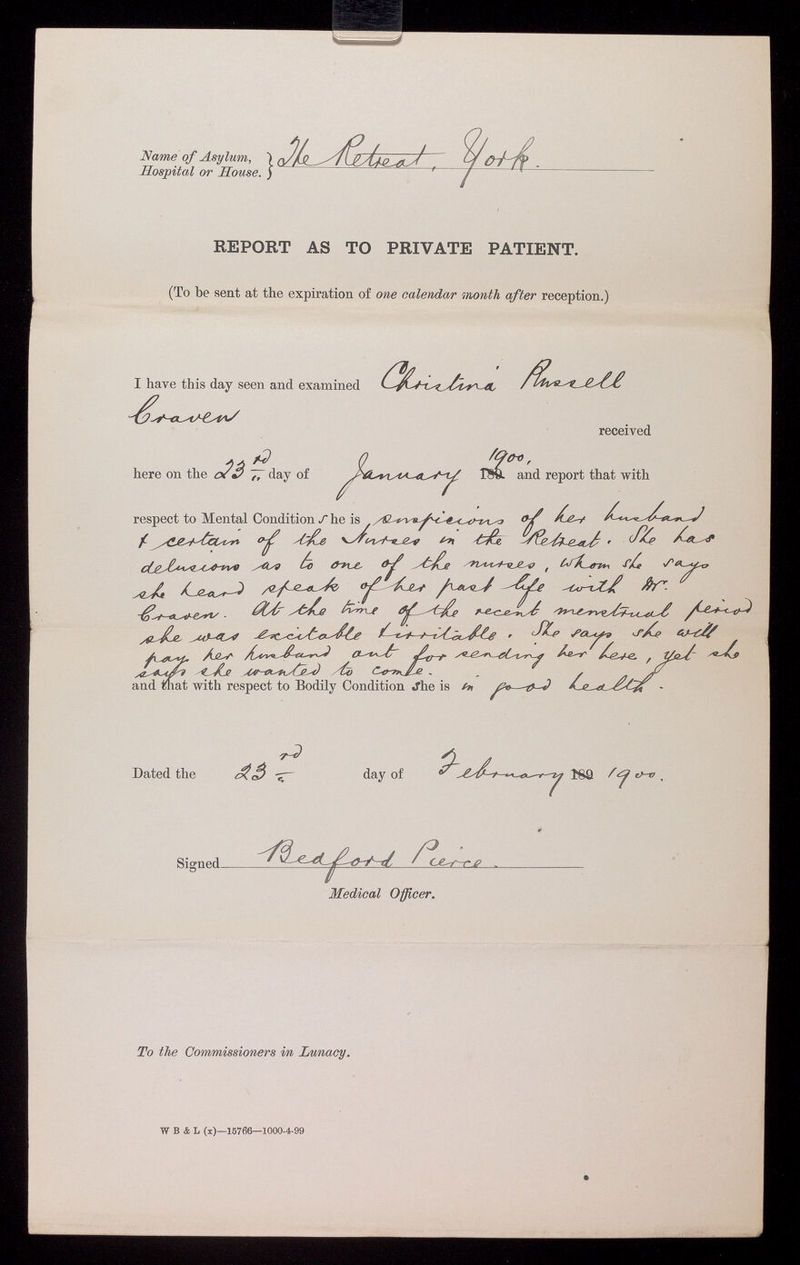 Name of Asylum, } The Retreat, York.
Hospital or House. }
REPORT AS TO PRIVATE PATIENT.
(To be sent at the expiration of one calendar month after reception.)
I have this day seen and examined Christina Russell
Craven
received
here on the 23rd day of January 189 1900, and report that with
respect to Mental Condition she is suspicious of her husband
& certain of the Nurses in the Retreat. She has
delusions as to one of the nurses, whom she says
she heard speak of her past life with Mr.
Craven. At the time of the recent menstrual period
she was excitable & irritable. She says she will
pay her husband out for sending her here, yet she
says she wanted to come.
and that with respect to Bodily Condition she is in good health.
Dated the 23rd day of February 189 1900.
Signed Bedford Pierce.
Medical Officer.
To the Commissioners in Lunacy.
W B & L (x)—15766—1000-4-99